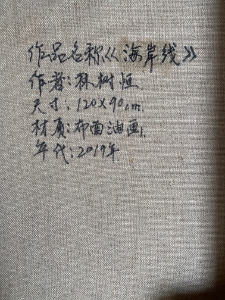 作品名称《海岸线》
作者:林树恒
尺寸:120×90cm
材质:布面油画
年代:2019年